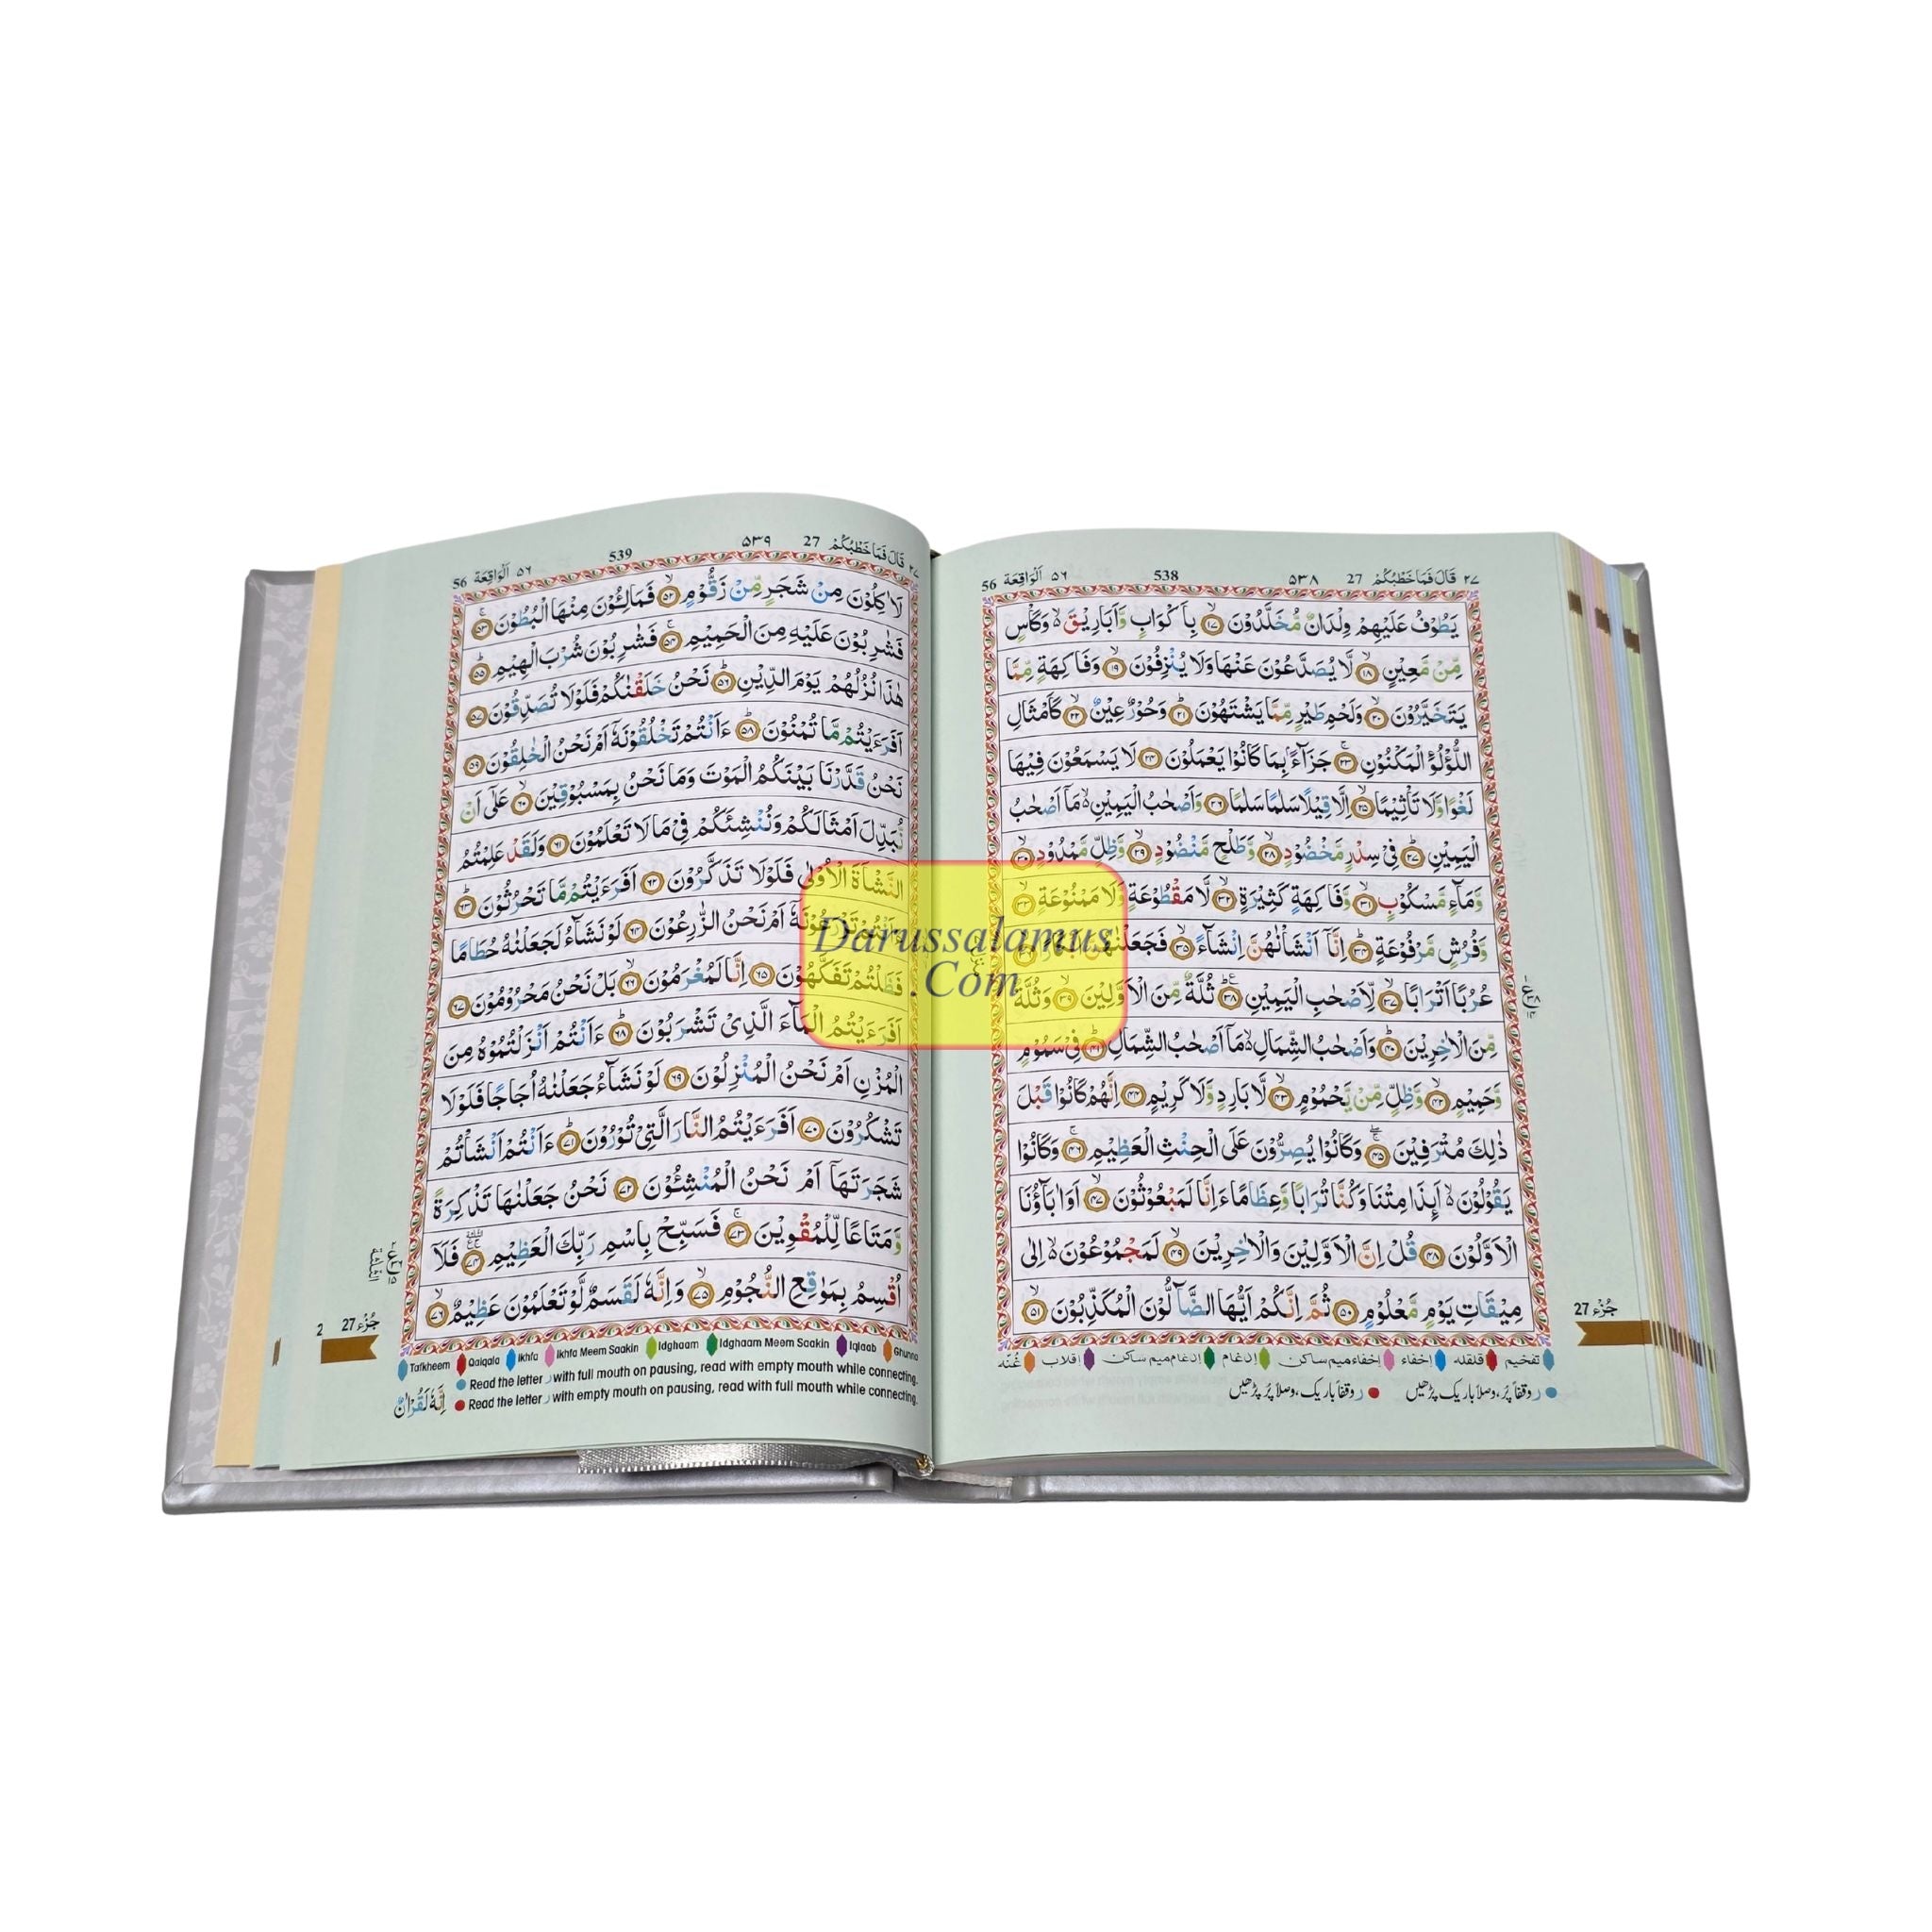 ٢٧ قَالَ فَمَا خَطْبُكُمْ 27 ٥٣٨ 538 ٥٦ اَلْوَاقِعَة 56
يَطُوْفُ عَلَيْهِمْ وِلْدَانٌ مُّخَلَّدُوْنَ ۙ۱۷ بِاَكْوَابٍ وَّاَبَارِيْقَ ۙ وَكَاْسٍ
مِّنْ مَّعِيْنٍ ۙ۱۸ لَّا يُصَدَّعُوْنَ عَنْهَا وَلَا يُنْزِفُوْنَ ۙ۱۹ وَفَاكِهَةٍ مِّمَّا
يَتَخَيَّرُوْنَ ۙ۲۰ وَلَحْمِ طَيْرٍ مِّمَّا يَشْتَهُوْنَ ؕ۲۱ وَحُوْرٌ عِيْنٌ ۙ۲۲ كَاَمْثَالِ
اللُّؤْلُؤِ الْمَكْنُوْنِ ۚ۲۳ جَزَآءًۢ بِمَا كَانُوْا يَعْمَلُوْنَ ۲۴ لَا يَسْمَعُوْنَ فِيْهَا
لَغْوًا وَّلَا تَاْثِيْمًا ۙ۲۵ اِلَّا قِيْلًا سَلٰمًا سَلٰمًا ۲۶ وَاَصْحٰبُ الْيَمِيْنِ ۙ مَاۤ اَصْحٰبُ
الْيَمِيْنِ ؕ۲۷ فِيْ سِدْرٍ مَّخْضُوْدٍ ۙ۲۸ وَّطَلْحٍ مَّنْضُوْدٍ ۙ۲۹ وَّظِلٍّ مَّمْدُوْدٍ ۙ۳۰
وَّمَآءٍ مَّسْكُوْبٍ ۙ۳۱ وَّفَاكِهَةٍ كَثِيْرَةٍ ۙ۳۲ لَّا مَقْطُوْعَةٍ وَّلَا مَمْنُوْعَةٍ ۙ۳۳
وَّفُرُشٍ مَّرْفُوْعَةٍ ؕ۳۴ اِنَّاۤ اَنْشَاْنٰهُنَّ اِنْشَآءً ۙ۳۵ فَجَعَلْنٰهُنَّ اَبْكَارًا ۙ۳۶
عُرُبًا اَتْرَابًا ۙ۳۷ لِّاَصْحٰبِ الْيَمِيْنِ ؕ۳۸ ثُلَّةٌ مِّنَ الْاَوَّلِيْنَ ۙ۳۹ وَثُلَّةٌ
مِّنَ الْاٰخِرِيْنَ ؕ۴۰ وَاَصْحٰبُ الشِّمَالِ ۙ مَاۤ اَصْحٰبُ الشِّمَالِ ؕ۴۱ فِيْ سَمُوْمٍ
وَّحَمِيْمٍ ۙ۴۲ وَّظِلٍّ مِّنْ يَّحْمُوْمٍ ۙ۴۳ لَّا بَارِدٍ وَّلَا كَرِيْمٍ ۴۴ اِنَّهُمْ كَانُوْا قَبْلَ
ذٰلِكَ مُتْرَفِيْنَ ۚ۴۵ وَكَانُوْا يُصِرُّوْنَ عَلَى الْحِنْثِ الْعَظِيْمِ ۚ۴۶ وَكَانُوْا
يَقُوْلُوْنَ ۙ اَىِٕذَا مِتْنَا وَكُنَّا تُرَابًا وَّعِظَامًا ءَاِنَّا لَمَبْعُوْثُوْنَ ۙ۴۷ اَوَاٰبَآؤُنَا
الْاَوَّلُوْنَ ۴۸ قُلْ اِنَّ الْاَوَّلِيْنَ وَالْاٰخِرِيْنَ ۙ۴۹ لَمَجْمُوْعُوْنَ ۙ اِلٰى
مِيْقَاتِ يَوْمٍ مَّعْلُوْمٍ ۵۰ ثُمَّ اِنَّكُمْ اَيُّهَا الضَّآلُّوْنَ الْمُكَذِّبُوْنَ ۙ۵۱
جُزْء 27
تفخيم قلقله إخفاء إخفاء ميم ساكن إدغام إدغام ميم ساكن إقلاب غُنّه
ر وقفاً پُر، وصلاً باریک پڑھیں ر وقفاً باریک، وصلاً پُر پڑھیں
٢٧ قَالَ فَمَا خَطْبُكُمْ 27 ٥٣٩ 539 ٥٦ اَلْوَاقِعَة 56
لَاٰكِلُوْنَ مِنْ شَجَرٍ مِّنْ زَقُّوْمٍ ۙ۵۲ فَمَالِـُٔوْنَ مِنْهَا الْبُطُوْنَ ۚ۵۳
فَشٰرِبُوْنَ عَلَيْهِ مِنَ الْحَمِيْمِ ۚ۵۴ فَشٰرِبُوْنَ شُرْبَ الْهِيْمِ ؕ۵۵
هٰذَا نُزُلُهُمْ يَوْمَ الدِّيْنِ ؕ۵۶ نَحْنُ خَلَقْنٰكُمْ فَلَوْلَا تُصَدِّقُوْنَ ۵۷
اَفَرَءَيْتُمْ مَّا تُمْنُوْنَ ؕ۵۸ ءَاَنْتُمْ تَخْلُقُوْنَهٗۤ اَمْ نَحْنُ الْخٰلِقُوْنَ ۵۹
نَحْنُ قَدَّرْنَا بَيْنَكُمُ الْمَوْتَ وَمَا نَحْنُ بِمَسْبُوْقِيْنَ ۙ۶۰ عَلٰۤى اَنْ
نُّبَدِّلَ اَمْثَالَكُمْ وَنُنْشِئَكُمْ فِيْ مَا لَا تَعْلَمُوْنَ ۶۱ وَلَقَدْ عَلِمْتُمُ
النَّشْاَةَ الْاُوْلٰى فَلَوْلَا تَذَكَّرُوْنَ ۶۲ اَفَرَءَيْتُمْ مَّا تَحْرُثُوْنَ ؕ۶۳
ءَاَنْتُمْ تَزْرَعُوْنَهٗۤ اَمْ نَحْنُ الزّٰرِعُوْنَ ۶۴ لَوْ نَشَآءُ لَجَعَلْنٰهُ حُطَامًا
فَظَلْتُمْ تَفَكَّهُوْنَ ۶۵ اِنَّا لَمُغْرَمُوْنَ ۙ۶۶ بَلْ نَحْنُ مَحْرُوْمُوْنَ ۶۷
اَفَرَءَيْتُمُ الْمَآءَ الَّذِيْ تَشْرَبُوْنَ ؕ۶۸ ءَاَنْتُمْ اَنْزَلْتُمُوْهُ مِنَ
الْمُزْنِ اَمْ نَحْنُ الْمُنْزِلُوْنَ ۶۹ لَوْ نَشَآءُ جَعَلْنٰهُ اُجَاجًا فَلَوْلَا
تَشْكُرُوْنَ ۷۰ اَفَرَءَيْتُمُ النَّارَ الَّتِيْ تُوْرُوْنَ ؕ۷۱ ءَاَنْتُمْ اَنْشَاْتُمْ
شَجَرَتَهَاۤ اَمْ نَحْنُ الْمُنْشِـُٔوْنَ ۷۲ نَحْنُ جَعَلْنٰهَا تَذْكِرَةً
وَّمَتَاعًا لِّلْمُقْوِيْنَ ۚ۷۳ فَسَبِّحْ بِاسْمِ رَبِّكَ الْعَظِيْمِ ۷۴ فَلَاۤ
اُقْسِمُ بِمَوٰقِعِ النُّجُوْمِ ۙ۷۵ وَاِنَّهٗ لَقَسَمٌ لَّوْ تَعْلَمُوْنَ عَظِيْمٌ ۙ۷۶
2 27 جُزْء
Tafkheem Qalqala Ikhfa Ikhfa Meem Saakin Idghaam Idghaam Meem Saakin Iqlaab Ghunna
Read the letter ر with full mouth on pausing, read with empty mouth while connecting.
Read the letter ر with empty mouth on pausing, read with full mouth while connecting.
اِنَّهٗ لَقُرْاٰنٌ
Darussalamus
.Com